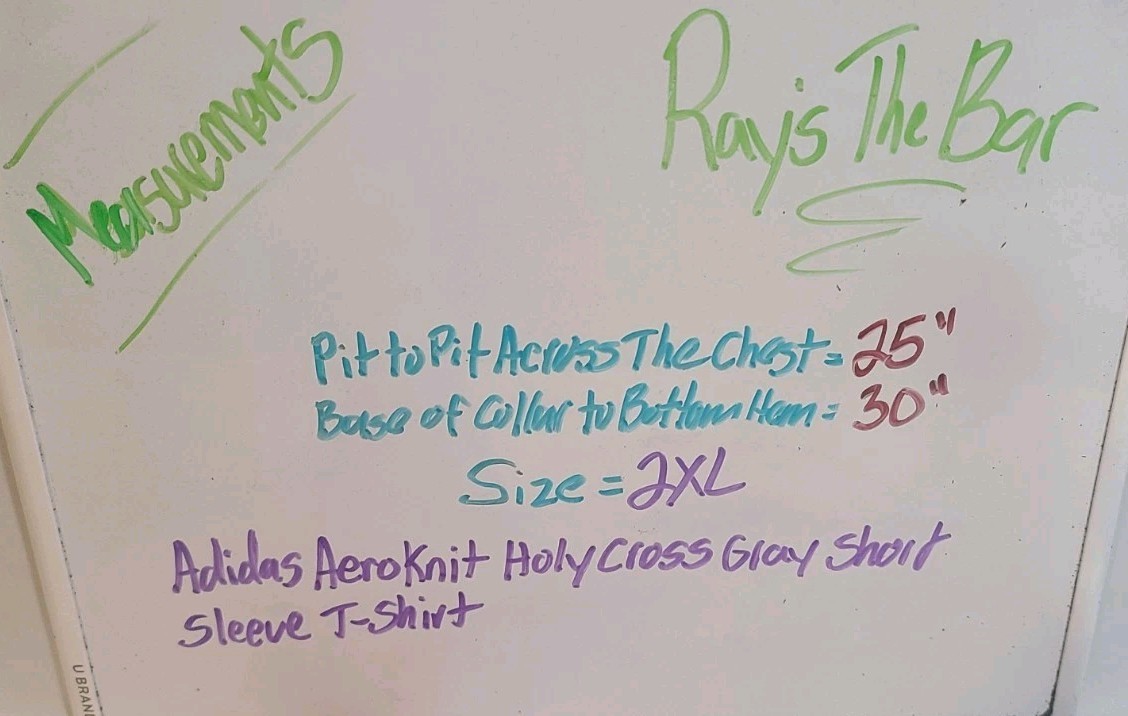 Measurements
Ray's The Bar
Pit to Pit Across The Chest = 25"
Base of Collar to Bottom Hem = 30"
Size = 2XL
Adidas AeroKnit Holy Cross Gray Short
Sleeve T-Shirt
U BRAN